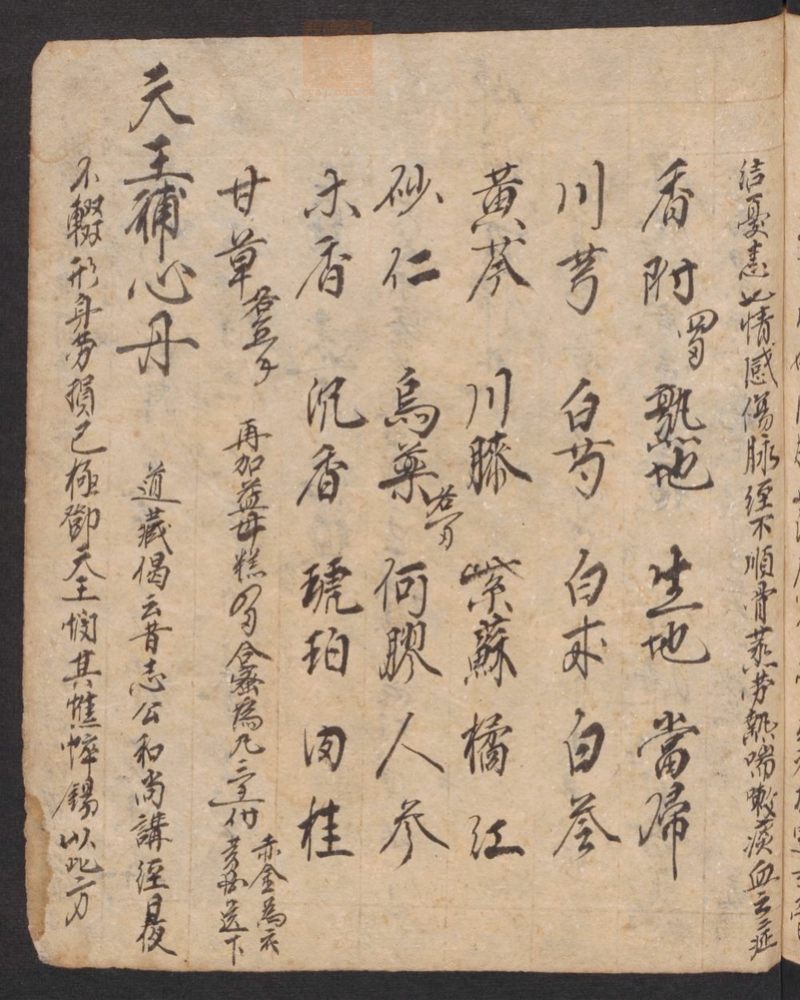 結憂恚七情感傷脉經不順骨蒸勞熱喘嗽痰血之症
香附四两 熟地 生地 當歸
川芎 白芍 白朮 白苓
黃芩 川膝 紫蘇 橘红
砂仁 烏藥各一两 阿膠 人参
木香 沉香 琥珀 肉桂
甘草各五錢 再加益母糕四两合蜜為丸三百付
赤金為衣
黃酒送下
天王補心丹 道藏偈云昔志公和尚講經晝夜
不輟形身勞損已極鄧天王憫其憔悴錫以此方